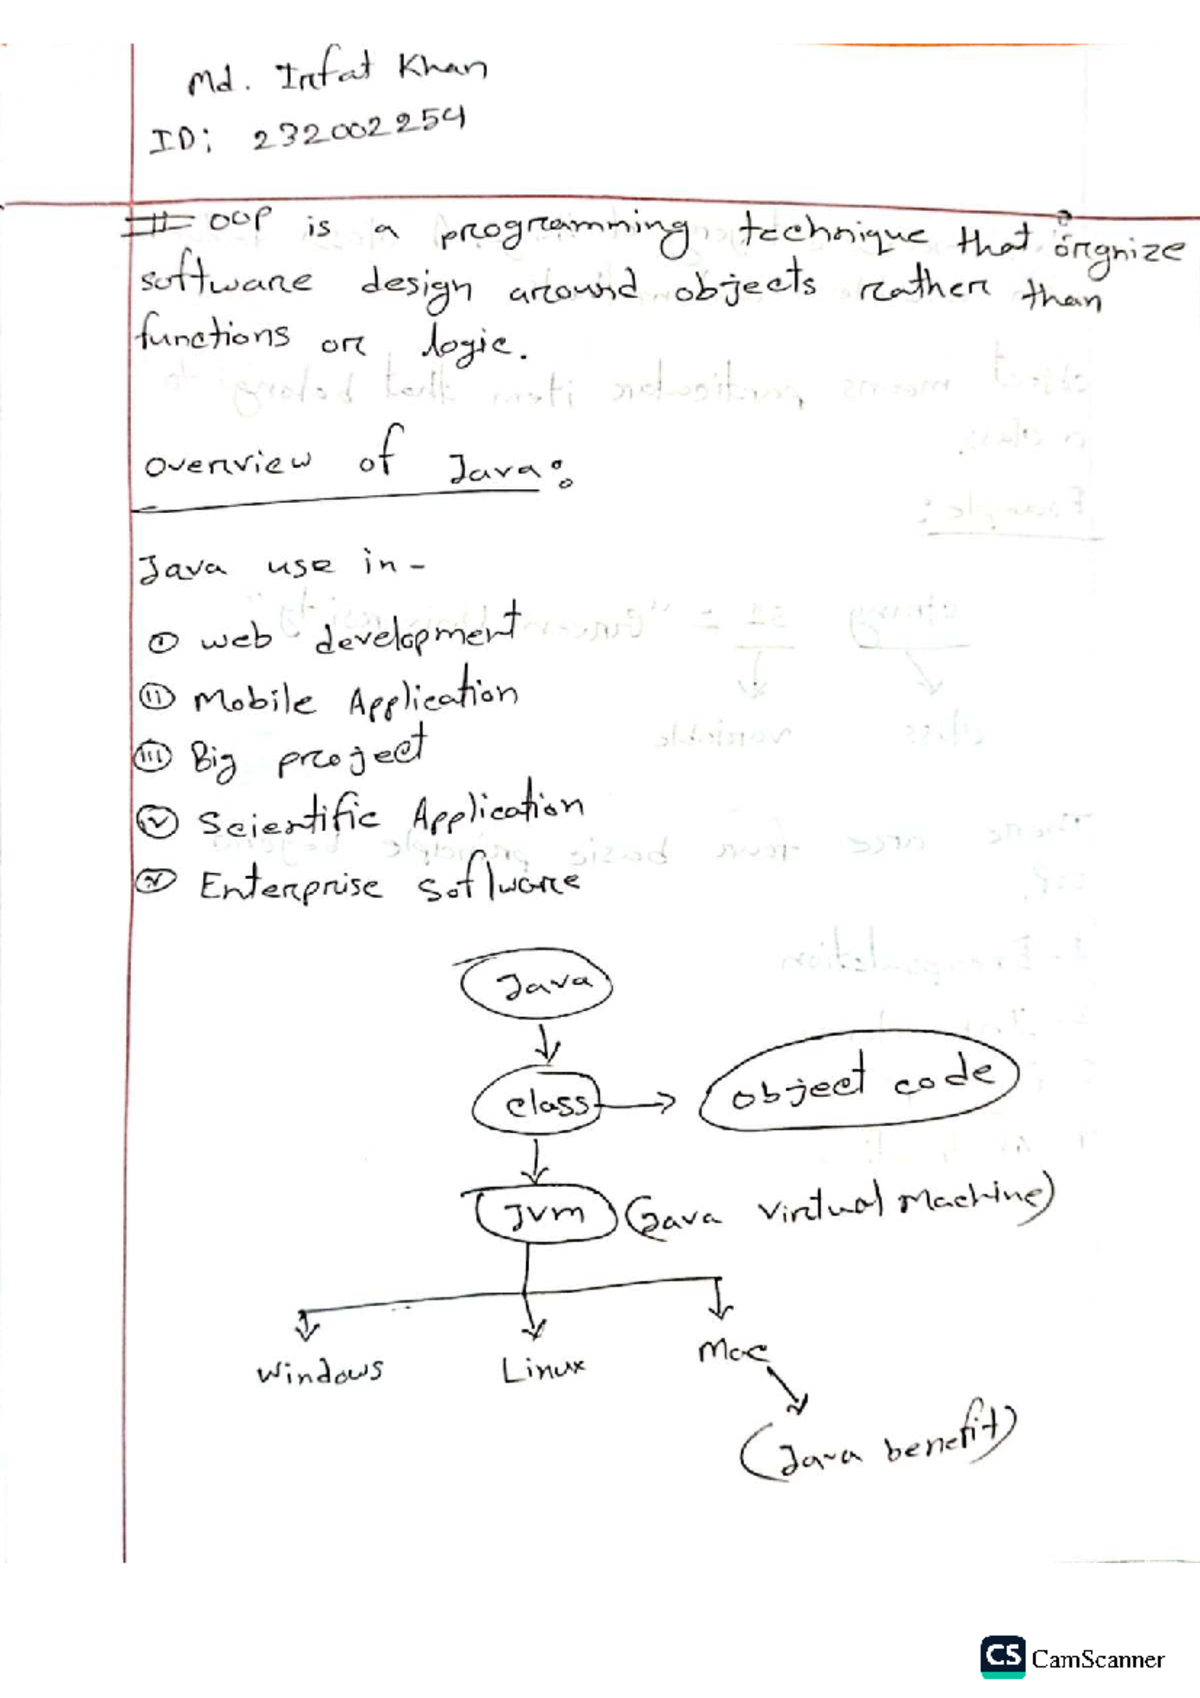 Md. Infat Khan
ID: 232002254
# OOP is a programming technique that orgnize
software design around objects rather than
functions or logic.
overview of Java:
Java use in -
(I) web development
(II) Mobile Application
(III) Big project
(IV) Scientific Application
(V) Enterprise software
Java
class → object code
JVM (Java Virtual Machine)
Windows Linux Mac
(Java benefit)
CS CamScanner